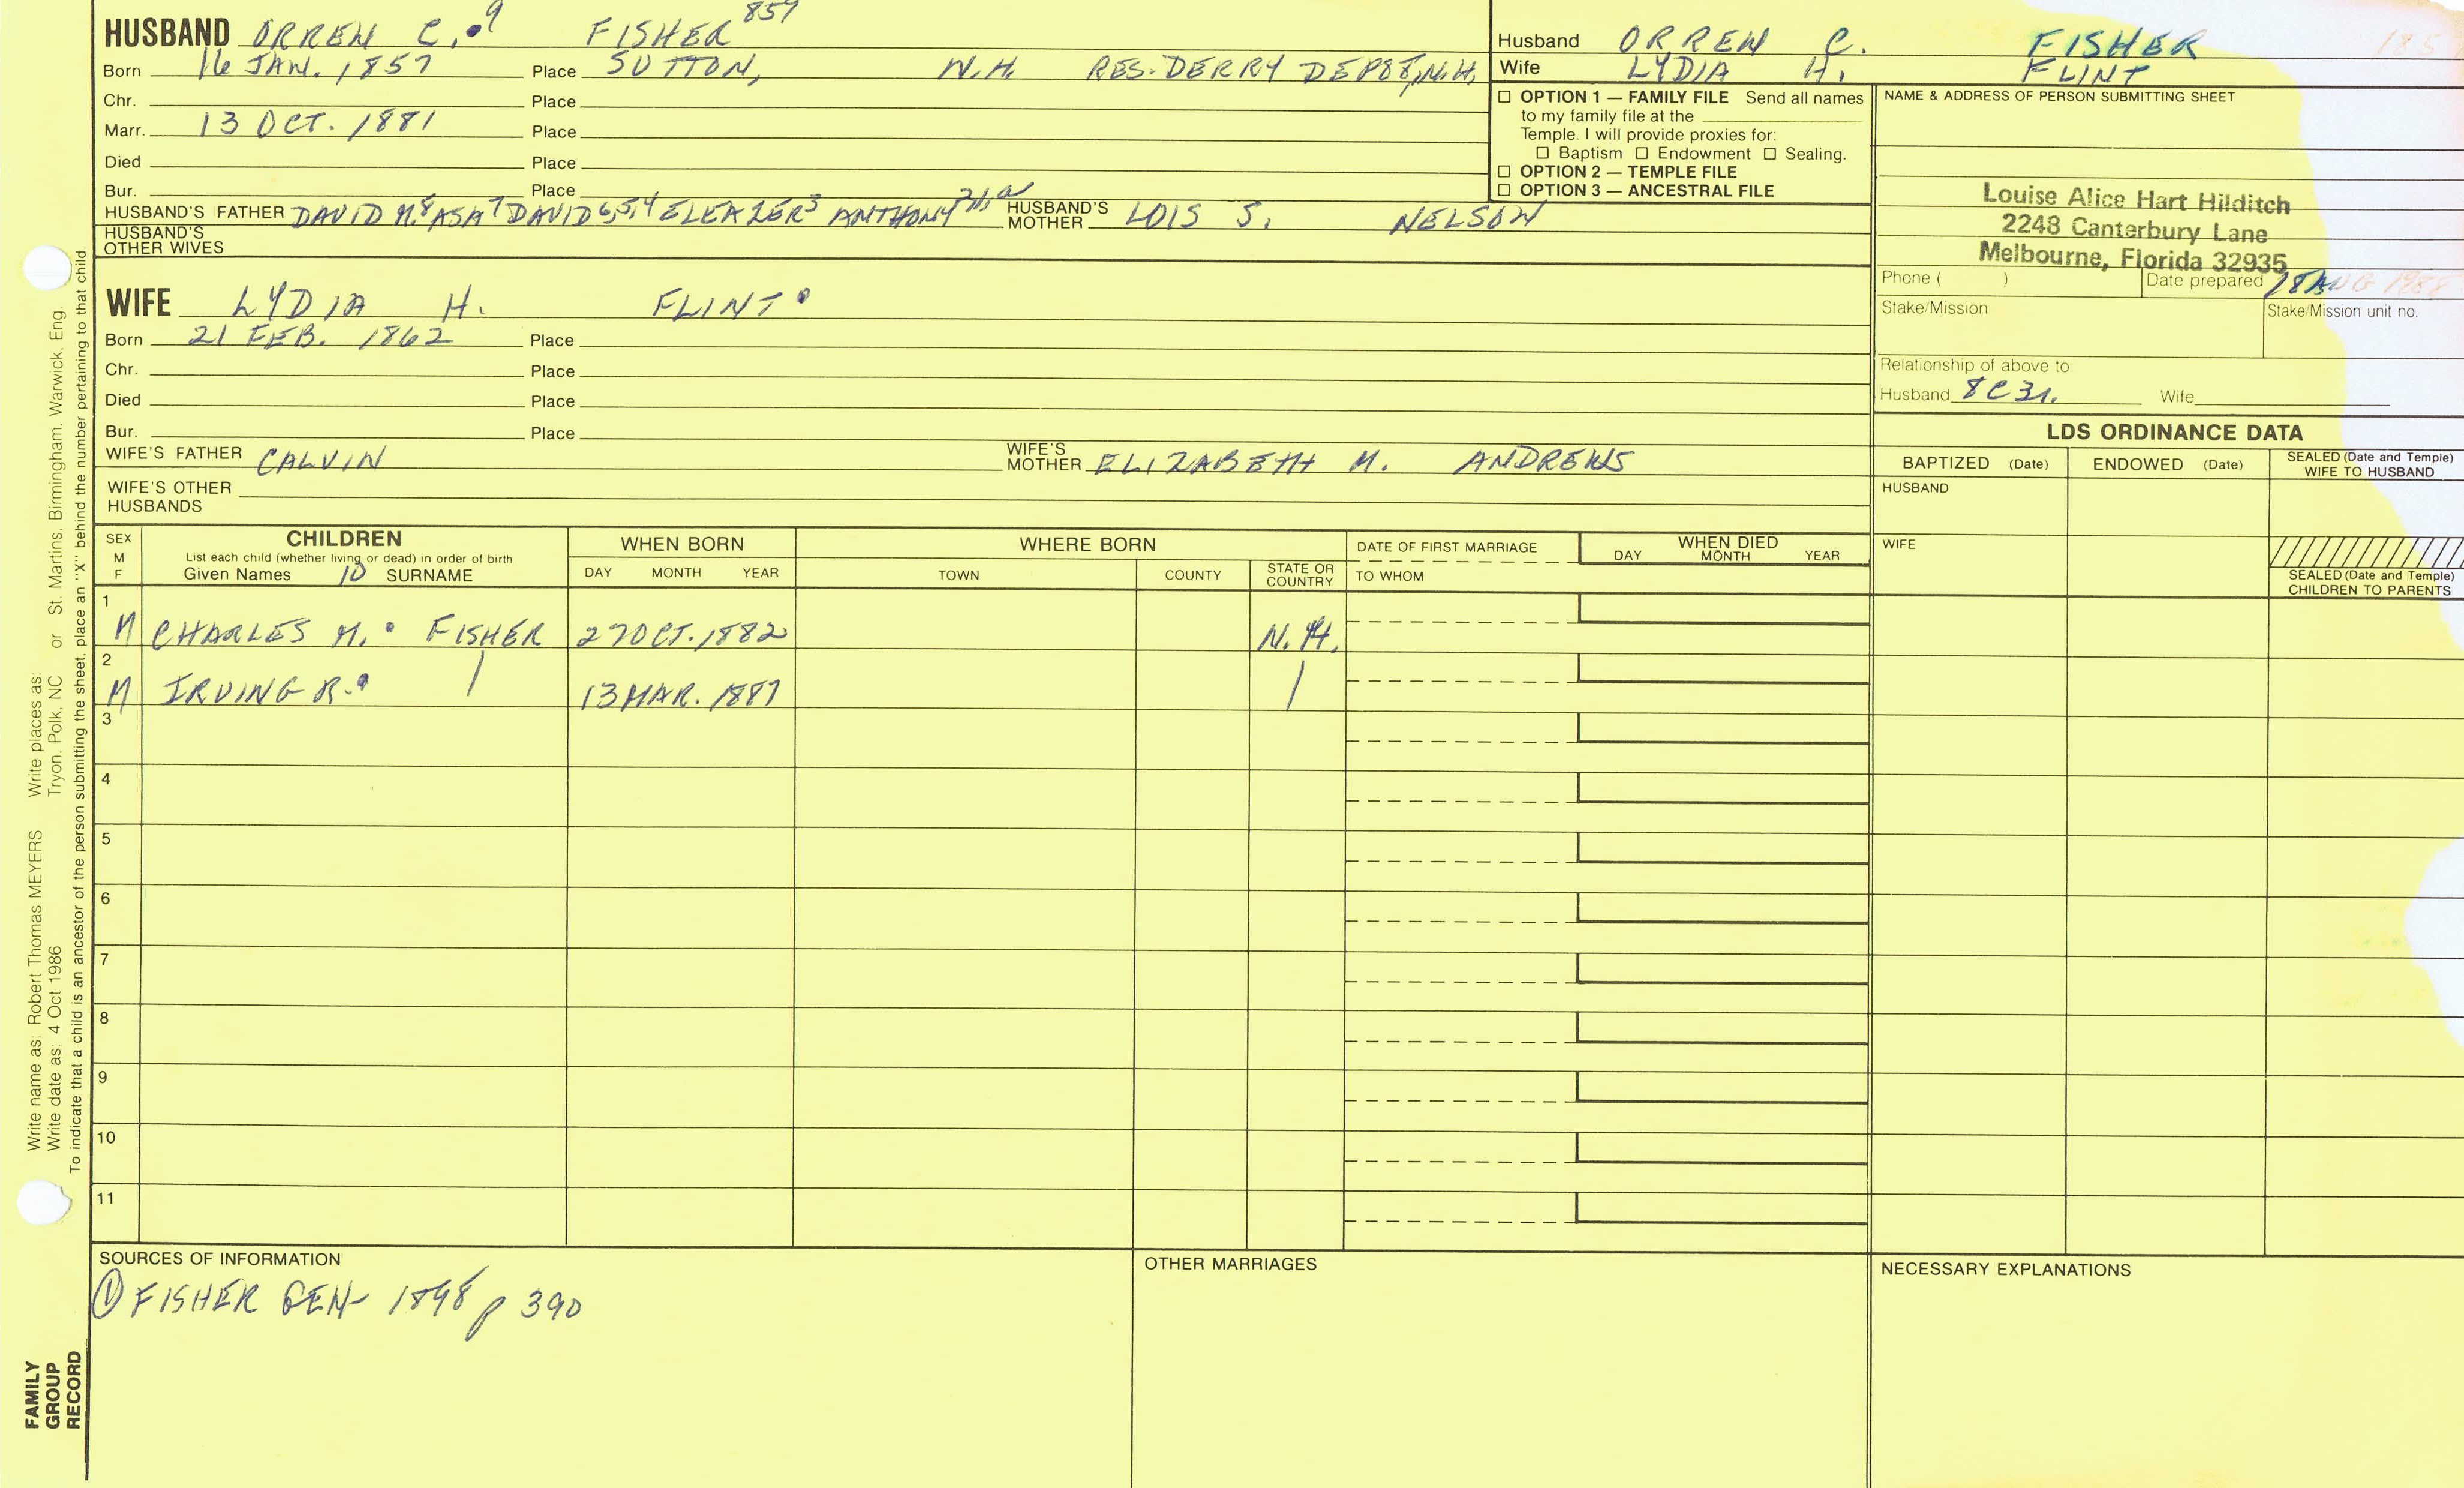 HUSBAND ORREN C.9 FISHER 859
Born 16 JAN. 1857 Place SUTTON, N.H. RES. DERRY DEPOT, N.H.
Chr. Place
Marr. 13 OCT. 1881 Place
Died Place
Bur. Place
HUSBAND'S FATHER DAVID M.8 ASA7 DAVID6,5,4 ELEAZER3 ANTHONY HUSBAND'S MOTHER LOIS S. NELSON
HUSBAND'S OTHER WIVES
WIFE LYDIA H. FLINT
Born 21 FEB. 1862 Place
Chr. Place
Died Place
Bur. Place
WIFE'S FATHER CALVIN WIFE'S MOTHER ELIZABETH M. ANDREWS
WIFE'S OTHER HUSBANDS
Husband ORREN C. FISHER
Wife LYDIA H. FLINT
☐ OPTION 1 — FAMILY FILE Send all names
to my family file at the
Temple. I will provide proxies for:
☐ Baptism ☐ Endowment ☐ Sealing.
☐ OPTION 2 — TEMPLE FILE
☐ OPTION 3 — ANCESTRAL FILE
NAME & ADDRESS OF PERSON SUBMITTING SHEET
Louise Alice Hart Hilditch
2248 Canterbury Lane
Melbourne, Florida 32935
Phone ( ) Date prepared AUG 1988
Stake/Mission Stake/Mission unit no.
Relationship of above to
Husband 8C3r. Wife
LDS ORDINANCE DATA
BAPTIZED (Date) ENDOWED (Date) SEALED (Date and Temple) WIFE TO HUSBAND
HUSBAND
WIFE
SEALED (Date and Temple) CHILDREN TO PARENTS
SEX M F CHILDREN WHEN BORN WHERE BORN DATE OF FIRST MARRIAGE WHEN DIED
List each child (whether living or dead) in order of birth
Given Names 10 SURNAME DAY MONTH YEAR TOWN COUNTY STATE OR COUNTRY TO WHOM DAY MONTH YEAR
1 M CHARLES M. FISHER 27 OCT. 1882 N.H.
2 M IRVING R. 13 MAR. 1887
3
4
5
6
7
8
9
10
11
SOURCES OF INFORMATION
① FISHER GEN 1898 p 390
OTHER MARRIAGES
NECESSARY EXPLANATIONS
Write name as: Robert Thomas MEYERS Write places as:
Write date as: 4 Oct 1986 Tryon, Polk, NC or St. Martins, Birmingham, Warwick, Eng.
To indicate that a child is an ancestor of the person submitting the sheet, place an "X" behind the number pertaining to that child.
FAMILY
GROUP
RECORD